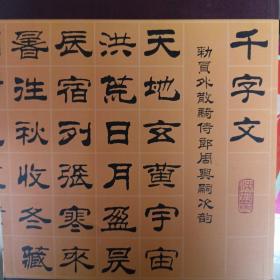 千字文
勑員外散騎侍郎周興嗣次韵
天地玄黃宇宙
洪荒日月盈昃
辰宿列張寒來
暑往秋收冬藏